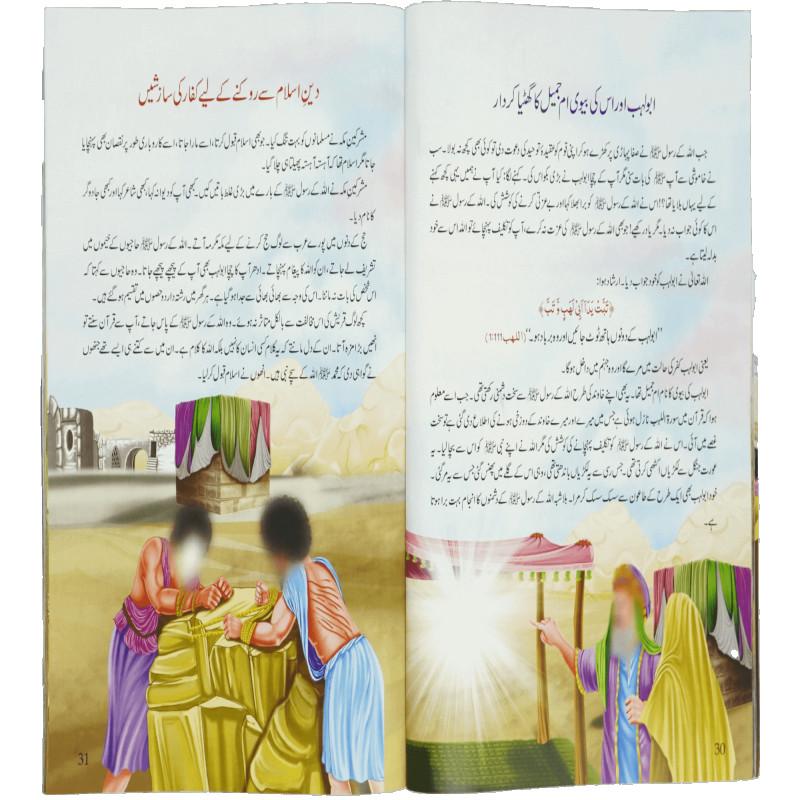 ابولہب اور اس کی بیوی ام جمیل کا گھٹیا کردار
جب اللہ کے رسول ﷺ نے صفا پہاڑی پر کھڑے ہو کر اپنی قوم کو عقیدۂ توحید کی دعوت دی تو کوئی بھی کچھ نہ بولا۔ سب
نے خاموشی سے آپ ﷺ کی بات سنی مگر آپ کے چچا ابولہب نے بڑی بکواس کی۔ کہنے لگا: کیا آپ نے ہمیں یہی کچھ کہنے
کے لیے یہاں بلایا تھا؟! اس نے اللہ کے رسول ﷺ کو برا بھلا کہا اور بے عزتی کرنے کی کوشش کی۔ اللہ کے رسول ﷺ نے
اس کا کوئی جواب نہ دیا۔ مگر یاد رکھیے! جو بھی اللہ کے رسول ﷺ کی عزت نہ کرے، آپ کو تکلیف پہنچائے تو اللہ اس سے خود
بدلہ لیتا ہے۔
اللہ تعالیٰ نے ابولہب کو خود جواب دیا۔ ارشاد ہوا:
﴿تَبَّتْ يَدَآ اَبِيْ لَهَبٍ وَّتَبَّ﴾
''ابولہب کے دونوں ہاتھ ٹوٹ جائیں اور وہ برباد ہو۔'' (اللھب 1:111)
یعنی ابولہب کفر کی حالت میں مرے گا اور وہ جہنم میں داخل ہوگا۔
ابولہب کی بیوی کا نام ام جمیل تھا۔ یہ بھی اپنے خاوند کی طرح اللہ کے رسول ﷺ سے سخت دشمنی رکھتی تھی۔ جب اسے معلوم
ہوا کہ قرآن میں سورۃ اللھب نازل ہوئی ہے جس میں میرے اور میرے خاوند کے دوزخی ہونے کی اطلاع دی گئی ہے تو سخت
غصے میں آئی۔ اس نے اللہ کے رسول ﷺ کو تکلیف پہنچانے کی کوشش کی مگر اللہ نے اپنے نبی ﷺ کو اس سے بچا لیا۔ یہ
عورت جنگل سے لکڑیاں اکٹھی کرتی تھی۔ جس رسی سے یہ لکڑیاں باندھتی تھی، وہی اس کے گلے میں پھنس گئی جس سے یہ مر گئی۔
خود ابولہب بھی ایک طرح کے طاعون سے سسک سسک کر مرا۔ بلاشبہ اللہ کے رسول ﷺ کے دشمنوں کا انجام بہت برا ہوتا
ہے۔
30
دین اسلام سے روکنے کے لیے کفار کی سازشیں
مشرکین مکہ نے مسلمانوں کو بہت تنگ کیا۔ جو بھی اسلام قبول کرتا، اسے مارا جاتا، اسے کاروباری طور پر نقصان بھی پہنچایا
جاتا مگر اسلام تھا کہ آہستہ آہستہ پھیلتا ہی چلا گیا۔
مشرکین مکہ نے اللہ کے رسول ﷺ کے بارے میں بڑی غلط باتیں کیں۔ کبھی آپ کو دیوانہ کہا، کبھی شاعر کہا اور کبھی جادوگر
کا نام دیا۔
حج کے دنوں میں پورے عرب سے لوگ حج کرنے کے لیے مکہ آتے۔ اللہ کے رسول ﷺ حاجیوں کے خیموں میں
تشریف لے جاتے، ان کو اللہ کا پیغام پہنچاتے۔ ادھر آپ کا چچا ابولہب بھی آپ کے پیچھے پیچھے جاتا۔ وہ حاجیوں سے کہتا کہ
اس شخص کی بات نہ ماننا۔ اس کی وجہ سے بھائی بھائی سے جدا ہو گیا ہے۔ ہر گھر میں رشتہ دار دو حصوں میں تقسیم ہو گئے ہیں۔
کچھ لوگ قریش کی اس مخالفت سے بالکل متاثر نہ ہوئے۔ وہ اللہ کے رسول ﷺ کے پاس جاتے، آپ سے قرآن سنتے تو
انھیں بڑا مزہ آتا۔ ان کے دل مانتے کہ یہ کلام کسی انسان کا نہیں بلکہ اللہ کا کلام ہے۔ ان میں سے کتنے ہی ایسے تھے جنھوں
نے گواہی دی کہ محمد ﷺ اللہ کے سچے نبی ہیں۔ انھوں نے اسلام قبول کر لیا۔
31